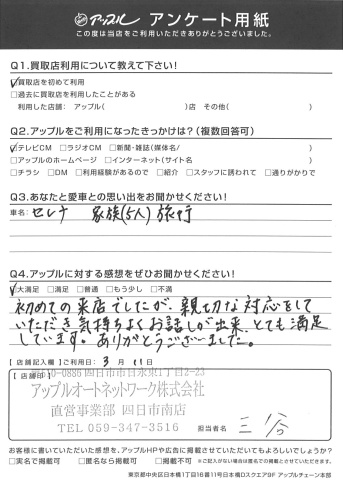 アップル アンケート用紙
この度は当店をご利用いただきありがとうございました。
Q1.買取店利用について教えて下さい!
☑買取店を初めて利用
□過去に買取店を利用したことがある
利用した店舗: アップル( )店 その他( )
Q2.アップルをご利用になったきっかけは?(複数回答可)
☑テレビCM □ラジオCM □新聞・雑誌(媒体名/ )
□アップルのホームページ □インターネット(サイト名 )
□チラシ □DM □利用経験があるので □紹介 □スタッフに誘われて □通りがかりで
Q3.あなたと愛車との思い出をお聞かせください!
車名: セレナ 家族(5人)旅行
Q4.アップルに対する感想をぜひお聞かせください!
☑大満足 □満足 □普通 □もう少し □不満
初めての来店でしたが、親切な対応をして
いただき気持ちよくお話しが出来、とても満足
しています。ありがとうございました。
【店舗記入欄】ご利用日: 3 月 11 日
【店舗印】
〒510-0886 四日市市日永東1丁目2-23
アップルオートネットワーク株式会社
直営事業部 四日市南店
TEL 059-347-3516
担当者名 三谷
お客様に書いていただいた感想を、アップルHPや広告に掲載させていただいてもよろしいでしょうか?
□実名で掲載可 □匿名なら掲載可 □掲載不可 ※ご記入がない場合は匿名での掲載とさせていただきます。
東京都中央区日本橋1丁目16番11号日本橋Dスクエア9F アップルチェーン本部